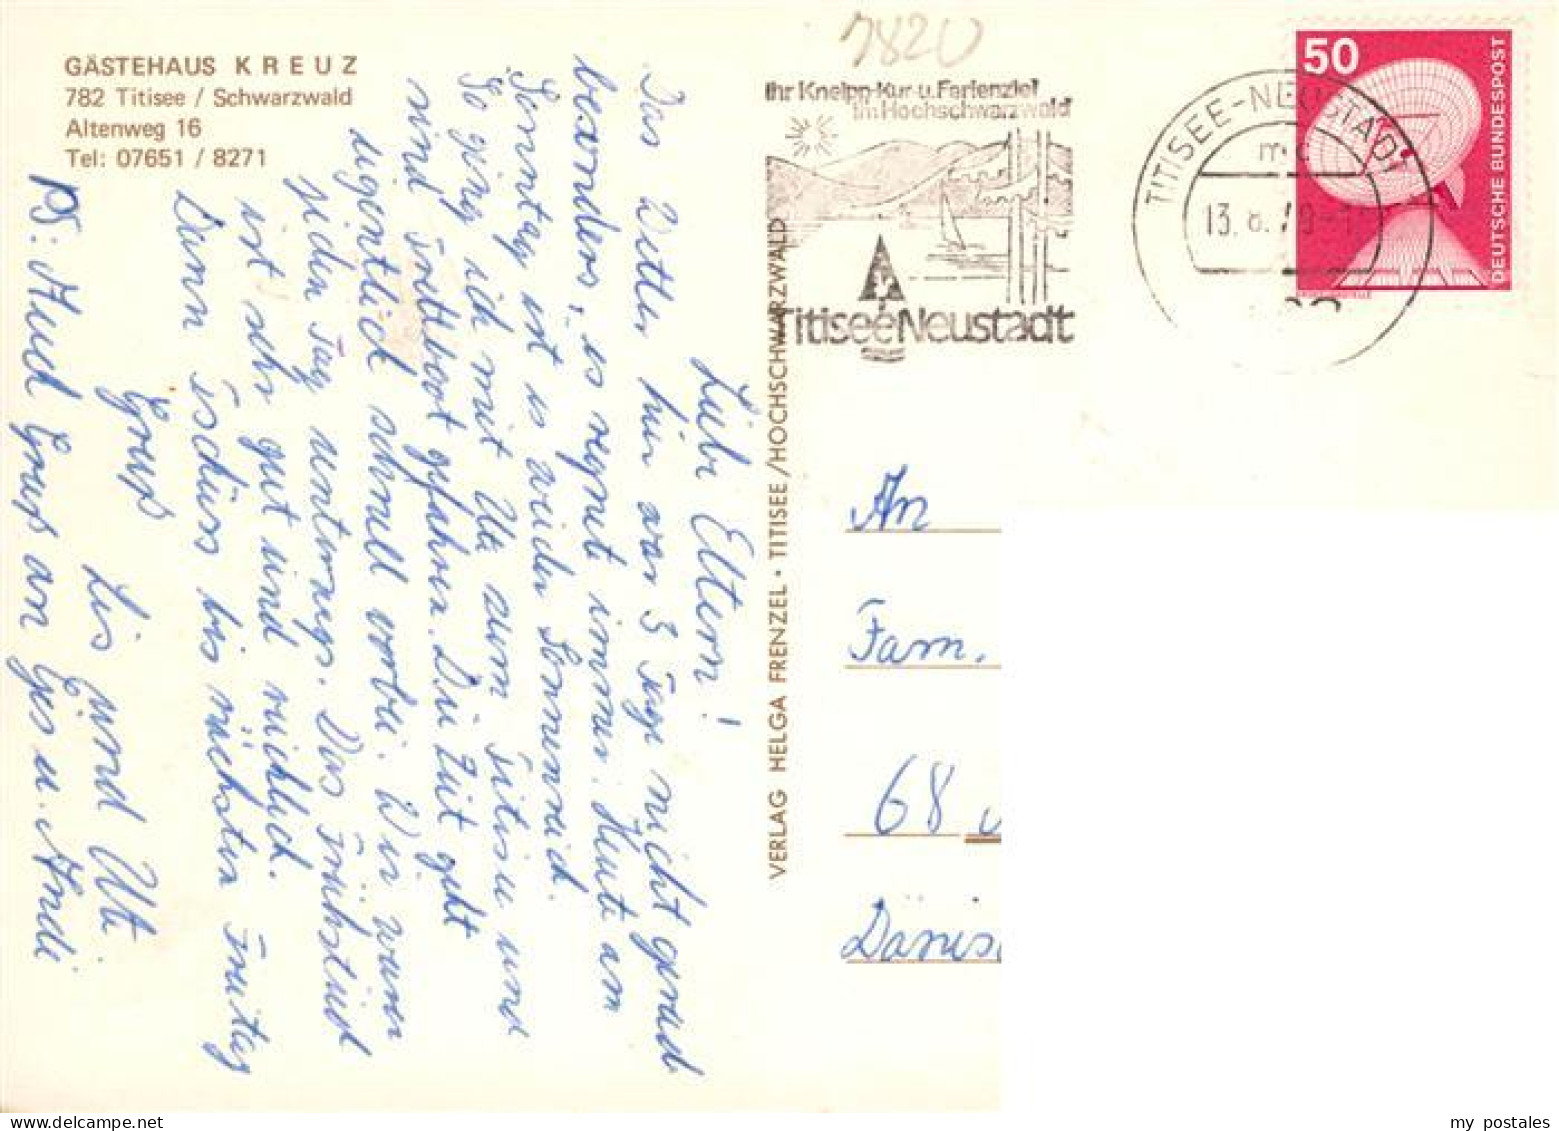 GÄSTEHAUS KREUZ
782 Titisee / Schwarzwald
Altenweg 16
Tel: 07651 / 8271
7820
Ihr Kneipp-Kur-u.Ferienziel
im Hochschwarzwald
Titisee Neustadt
TITISEE-NEUSTADT
13. 8. 79-1
50
DEUTSCHE BUNDESPOST
VERLAG HELGA FRENZEL · TITISEE / HOCHSCHWARZWALD
Liebe Eltern!
Das Wetter hier war 3 Tage nicht gerad
besonders, es regnete immer. Heute am
Sonntag ist es wieder Sonnenreich.
So ging ich mit Uti zum Titisee und
sind Trettboot gefahren. Die Zeit geht
eigentlich schnell vorbei. Wir waren
jeden Tag unterwegs. Das Frühstück
ist sehr gut und reichlich.
Dann Tschüss bis nächsten Freitag
Gruß Lis und Uti
PS: Auch Gruß an Gis u. Andi
An
Fam.
68
Dänis
my postales